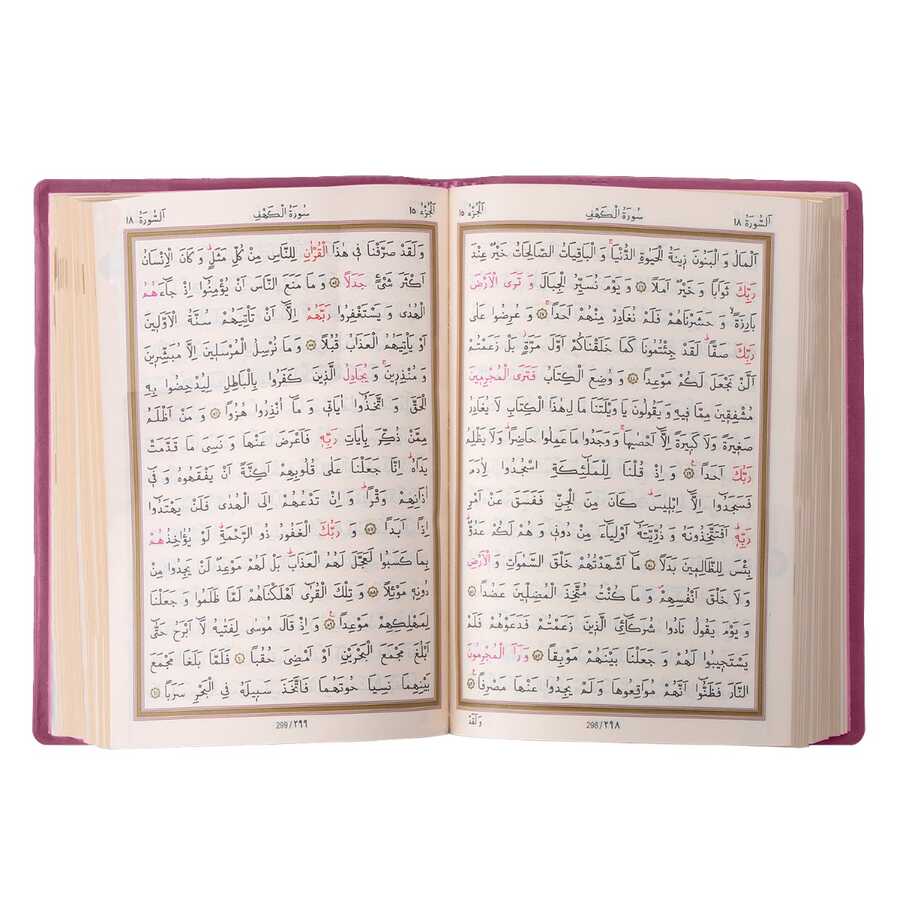 اَلسُّورَةُ ١٨
سُورَةُ الْكَهْفِ
اَلْجُزْءُ ١٥
اَلْمَالُ وَ الْبَنُونَ زِينَةُ الْحَيٰوةِ الدُّنْيَاۚ وَ الْبَاقِيَاتُ الصَّالِحَاتُ خَيْرٌ عِنْدَ
رَبِّكَ ثَوَابًا وَ خَيْرٌ اَمَلًا ﴿٤٦﴾ وَ يَوْمَ نُسَيِّرُ الْجِبَالَ وَ تَرَى الْاَرْضَ
بَارِزَةًۙ وَ حَشَرْنَاهُمْ فَلَمْ نُغَادِرْ مِنْهُمْ اَحَدًاۚ ﴿٤٧﴾ وَ عُرِضُوا عَلٰى
رَبِّكَ صَفًّاؕ لَقَدْ جِئْتُمُونَا كَمَا خَلَقْنَاكُمْ اَوَّلَ مَرَّةٍۘ بَلْ زَعَمْتُمْ
اَلَّنْ نَجْعَلَ لَكُمْ مَوْعِدًا ﴿٤٨﴾ وَ وُضِعَ الْكِتَابُ فَتَرَى الْمُجْرِمِينَ
مُشْفِقِينَ مِمَّا فِيهِ وَ يَقُولُونَ يَا وَيْلَتَنَا مَا لِهٰذَا الْكِتَابِ لَا يُغَادِرُ
صَغِيرَةً وَ لَا كَبِيرَةً اِلَّٓا اَحْصٰيهَاۚ وَ وَجَدُوا مَا عَمِلُوا حَاضِرًاؕ وَ لَا يَظْلِمُ
رَبُّكَ اَحَدًا ﴿٤٩﴾ وَ اِذْ قُلْنَا لِلْمَلٰٓئِكَةِ اسْجُدُوا لِاٰدَمَ
فَسَجَدُٓوا اِلَّٓا اِبْلِيسَؕ كَانَ مِنَ الْجِنِّ فَفَسَقَ عَنْ اَمْرِ
رَبِّهٖؕ اَفَتَتَّخِذُونَهُ وَ ذُرِّيَّتَهُٓ اَوْلِيَٓاءَ مِنْ دُونٖى وَ هُمْ لَكُمْ عَدُوٌّؕ
بِئْسَ لِلظَّالِمِينَ بَدَلًا ﴿٥٠﴾ مَٓا اَشْهَدْتُهُمْ خَلْقَ السَّمٰوَاتِ وَ الْاَرْضِ
وَ لَا خَلْقَ اَنْفُسِهِمْ وَ مَا كُنْتُ مُتَّخِذَ الْمُضِلِّينَ عَضُدًا ﴿٥١﴾
وَ يَوْمَ يَقُولُ نَادُوا شُرَكَٓائِىَ الَّذِينَ زَعَمْتُمْ فَدَعَوْهُمْ فَلَمْ
يَسْتَجِيبُوا لَهُمْ وَ جَعَلْنَا بَيْنَهُمْ مَوْبِقًا ﴿٥٢﴾ وَ رَاَ الْمُجْرِمُونَ
النَّارَ فَظَنُّٓوا اَنَّهُمْ مُوَاقِعُوهَا وَ لَمْ يَجِدُوا عَنْهَا مَصْرِفًا ﴿٥٣﴾
298 / ٢٩٨
وَ لَقَدْ
اَلْجُزْءُ ١٥
سُورَةُ الْكَهْفِ
اَلسُّورَةُ ١٨
وَ لَقَدْ صَرَّفْنَا فٖى هٰذَا الْقُرْاٰنِ لِلنَّاسِ مِنْ كُلِّ مَثَلٍؕ وَ كَانَ الْاِنْسَانُ
اَكْثَرَ شَىْءٍ جَدَلًا ﴿٥٤﴾ وَ مَا مَنَعَ النَّاسَ اَنْ يُؤْمِنُٓوا اِذْ جَٓاءَهُمُ
الْهُدٰى وَ يَسْتَغْفِرُوا رَبَّهُمْ اِلَّٓا اَنْ تَاْتِيَهُمْ سُنَّةُ الْاَوَّلِينَ
اَوْ يَاْتِيَهُمُ الْعَذَابُ قُبُلًا ﴿٥٥﴾ وَ مَا نُرْسِلُ الْمُرْسَلِينَ اِلَّا مُبَشِّرِينَ
وَ مُنْذِرِينَۚ وَ يُجَادِلُ الَّذِينَ كَفَرُوا بِالْبَاطِلِ لِيُدْحِضُوا بِهِ
الْحَقَّ وَ اتَّخَذُٓوا اٰيَاتٖى وَ مَٓا اُنْذِرُوا هُزُوًا ﴿٥٦﴾ وَ مَنْ اَظْلَمُ
مِمَّنْ ذُكِّرَ بِاٰيَاتِ رَبِّهٖ فَاَعْرَضَ عَنْهَا وَ نَسِىَ مَا قَدَّمَتْ
يَدَاهُؕ اِنَّا جَعَلْنَا عَلٰى قُلُوبِهِمْ اَكِنَّةً اَنْ يَفْقَهُوهُ وَ فٖٓى
اٰذَانِهِمْ وَقْرًاؕ وَ اِنْ تَدْعُهُمْ اِلَى الْهُدٰى فَلَنْ يَهْتَدُٓوا
اِذًا اَبَدًا ﴿٥٧﴾ وَ رَبُّكَ الْغَفُورُ ذُو الرَّحْمَةِؕ لَوْ يُؤَاخِذُهُمْ
بِمَا كَسَبُوا لَعَجَّلَ لَهُمُ الْعَذَابَؕ بَلْ لَهُمْ مَوْعِدٌ لَنْ يَجِدُوا مِنْ
دُونِهٖ مَوْئِلًا ﴿٥٨﴾ وَ تِلْكَ الْقُرٰٓى اَهْلَكْنَاهُمْ لَمَّا ظَلَمُوا وَ جَعَلْنَا
لِمَهْلِكِهِمْ مَوْعِدًا۟ ﴿٥٩﴾ وَ اِذْ قَالَ مُوسٰى لِفَتٰيهُ لَٓا اَبْرَحُ حَتّٰٓى
اَبْلُغَ مَجْمَعَ الْبَحْرَيْنِ اَوْ اَمْضِىَ حُقُبًا ﴿٦٠﴾ فَلَمَّا بَلَغَا مَجْمَعَ
بَيْنِهِمَا نَسِيَا حُوتَهُمَا فَاتَّخَذَ سَبِيلَهُ فِى الْبَحْرِ سَرَبًا ﴿٦١﴾
299 / ٢٩٩